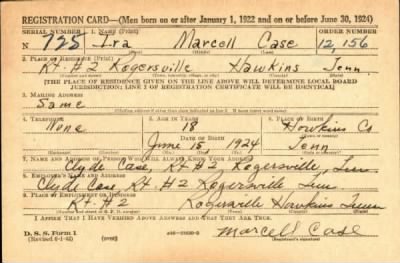 REGISTRATION CARD—(Men born on or after January 1, 1922 and on or before June 30, 1924)
SERIAL NUMBER 1. NAME (Print) ORDER NUMBER
N 725 Ira Marcell Case 12,156
2. PLACE OF RESIDENCE (Print)
Rt. #2 Rogersville Hawkins Tenn.
[THE PLACE OF RESIDENCE GIVEN ON THE LINE ABOVE WILL DETERMINE LOCAL BOARD
JURISDICTION; LINE 2 OF REGISTRATION CERTIFICATE WILL BE IDENTICAL]
3. MAILING ADDRESS
Same
4. TELEPHONE 5. AGE IN YEARS 6. PLACE OF BIRTH
None 18 Hawkins Co
DATE OF BIRTH
June 15 1924 Tenn
7. NAME AND ADDRESS OF PERSON WHO WILL ALWAYS KNOW YOUR ADDRESS
Clyde Case, Rt. #2 Rogersville, Tenn.
8. EMPLOYER'S NAME AND ADDRESS
Clyde Case Rt #2 Rogersville Tenn
9. PLACE OF EMPLOYMENT OR BUSINESS
Rt. #2 Rogersville Hawkins Tenn
I AFFIRM THAT I HAVE VERIFIED ABOVE ANSWERS AND THAT THEY ARE TRUE.
D. S. S. Form 1
(Revised 6-1-42) (over)
Marcell Case
(Registrant's signature)